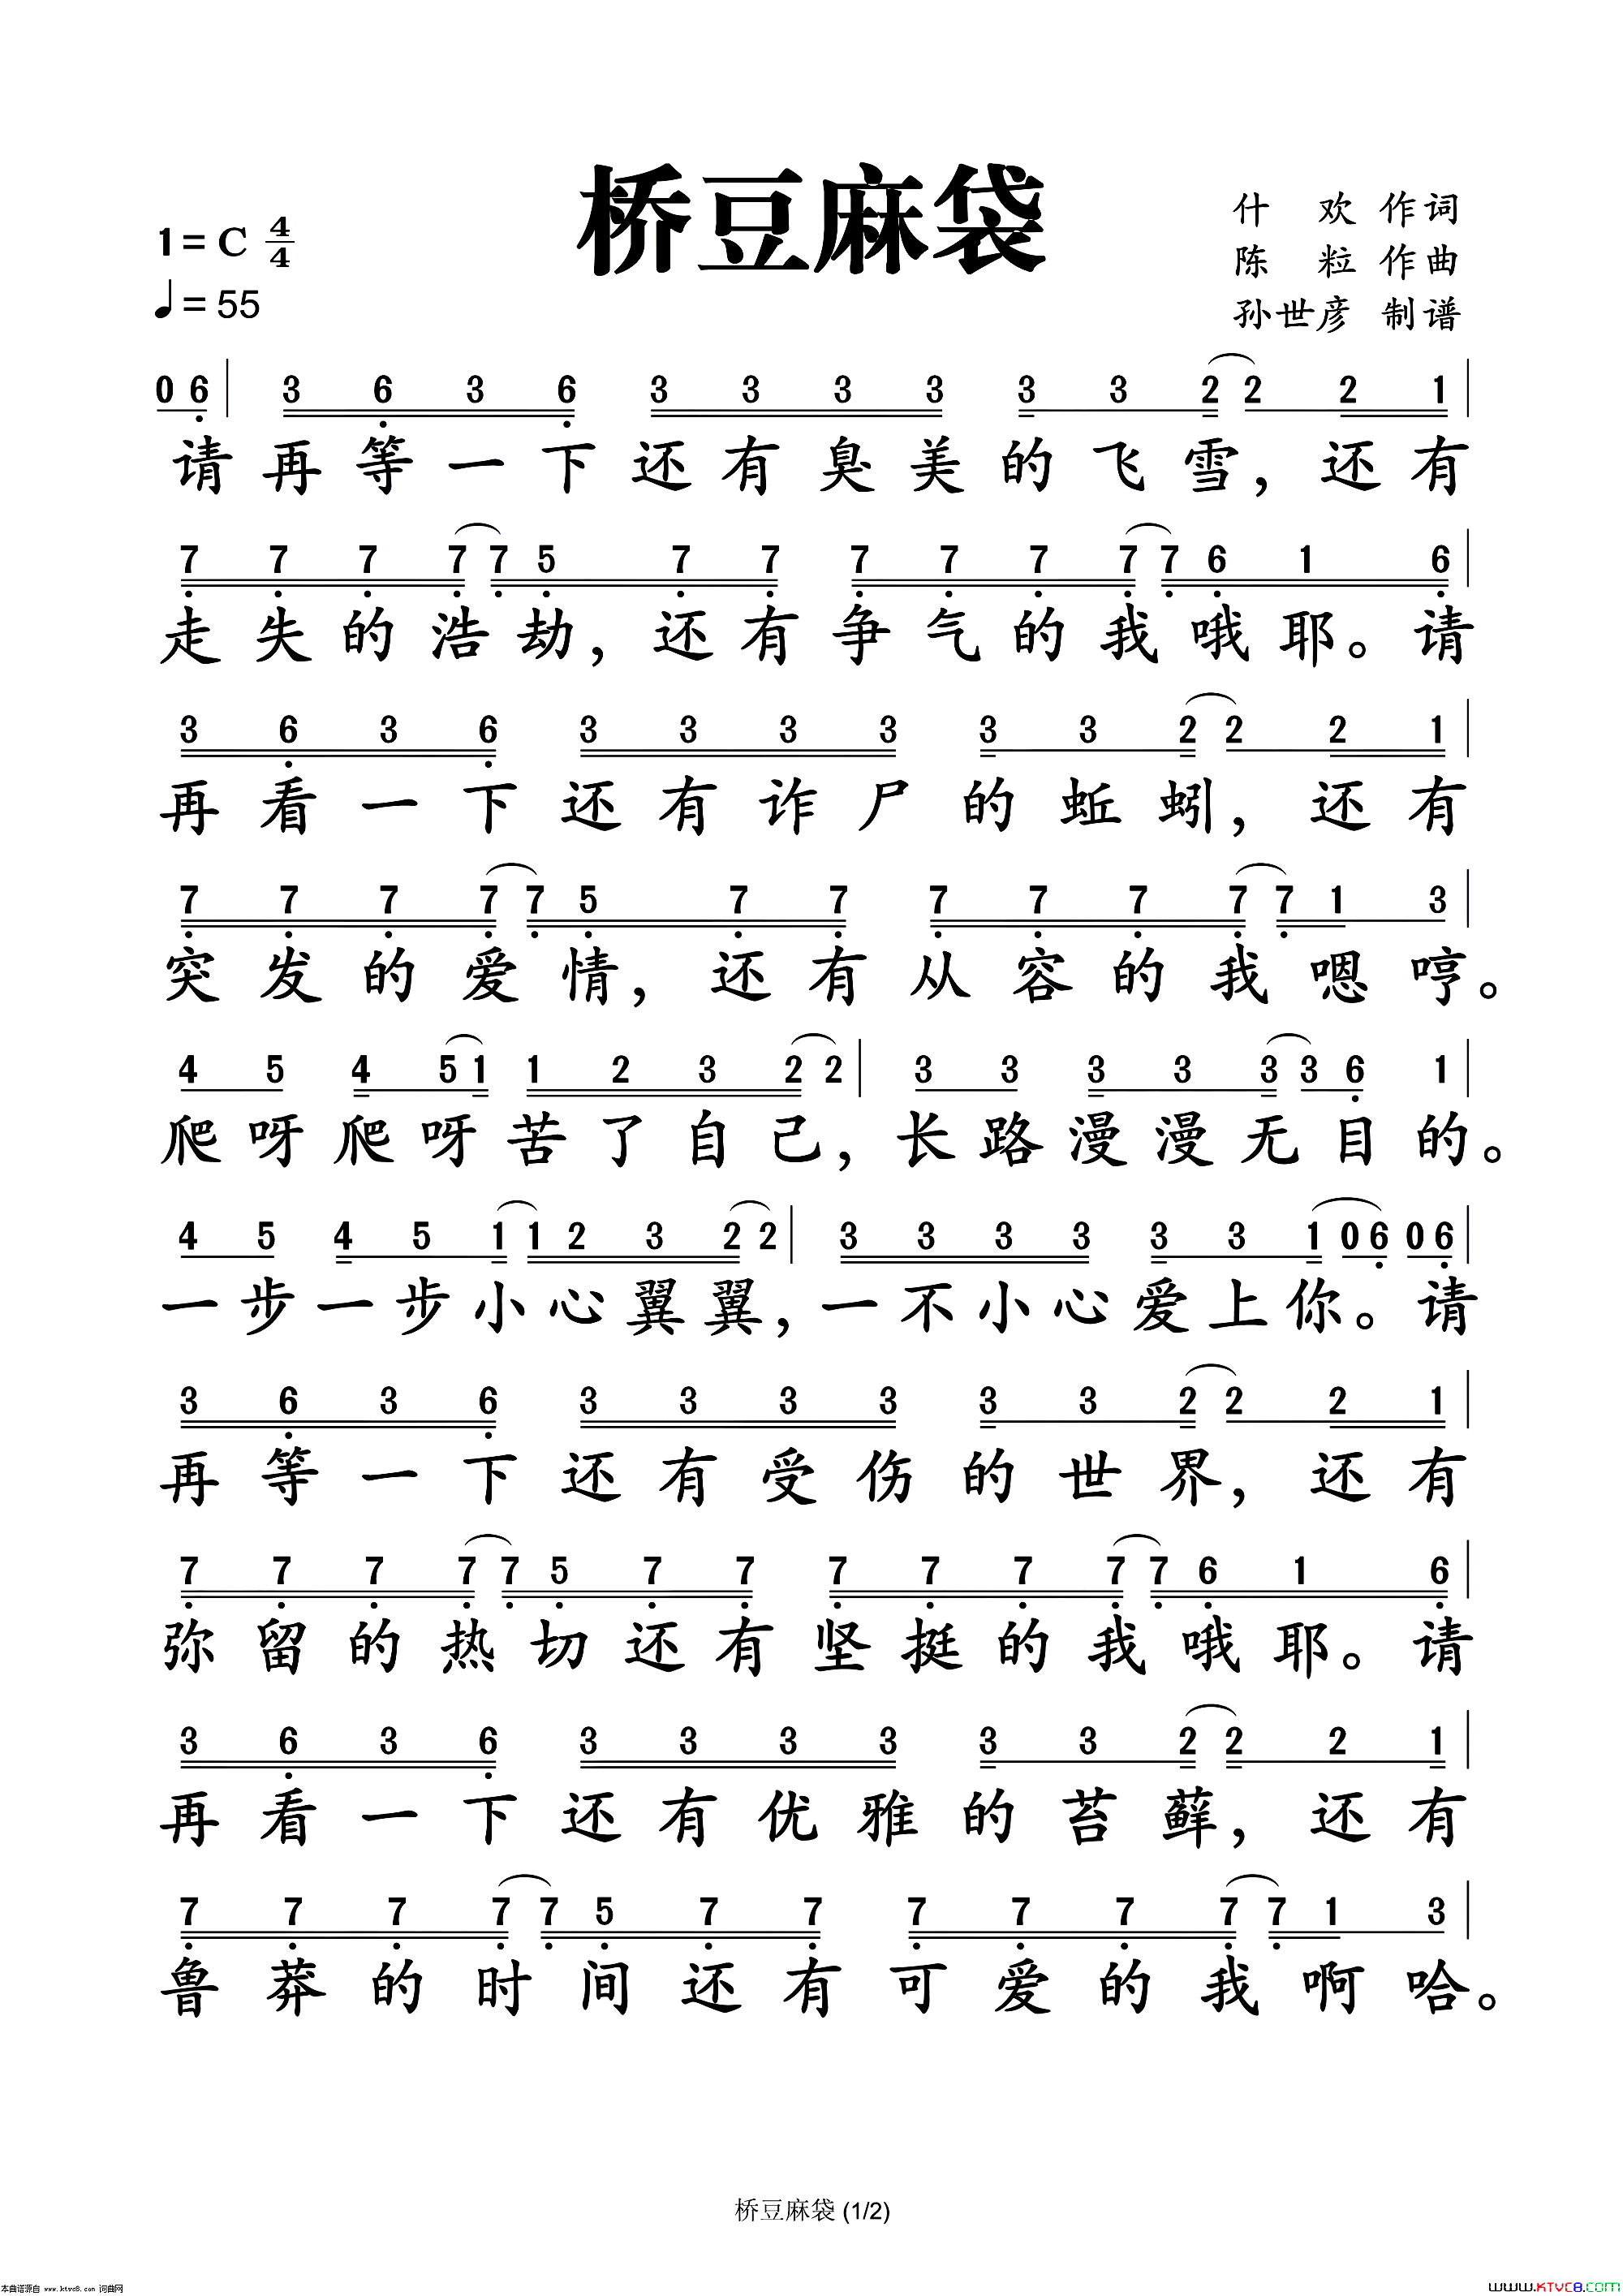 桥豆麻袋
1=C 4/4
♩=55
什 欢 作词
陈 粒 作曲
孙世彦 制谱
0 6 | 3 6 3 6 3 3 3 3 3 3 2 2 2 1 |
请 再 等 一 下 还 有 臭 美 的 飞 雪, 还 有
7 7 7 7 7 5 7 7 7 7 7 7 7 6 1 6 |
走 失 的 浩 劫, 还 有 争 气 的 我 哦 耶。请
3 6 3 6 3 3 3 3 3 3 2 2 2 1 |
再 看 一 下 还 有 诈 尸 的 蚯 蚓, 还 有
7 7 7 7 7 5 7 7 7 7 7 7 7 1 3 |
突 发 的 爱 情, 还 有 从 容 的 我 嗯 哼。
4 5 4 5 1 1 2 3 2 2 | 3 3 3 3 3 3 6 1 |
爬 呀 爬 呀 苦 了 自 己, 长 路 漫 漫 无 目 的。
4 5 4 5 1 1 2 3 2 2 | 3 3 3 3 3 3 1 0 6 0 6 |
一 步 一 步 小 心 翼 翼, 一 不 小 心 爱 上 你。请
3 6 3 6 3 3 3 3 3 3 2 2 2 1 |
再 等 一 下 还 有 受 伤 的 世 界, 还 有
7 7 7 7 7 5 7 7 7 7 7 7 7 6 1 6 |
弥 留 的 热 切 还 有 坚 挺 的 我 哦 耶。请
3 6 3 6 3 3 3 3 3 3 2 2 2 1 |
再 看 一 下 还 有 优 雅 的 苔 藓, 还 有
7 7 7 7 7 5 7 7 7 7 7 7 7 1 3 |
鲁 莽 的 时 间 还 有 可 爱 的 我 啊 哈。
桥豆麻袋 (1/2)
本曲谱源自 www.ktvc8.com 词曲网
www.KTVC8.com